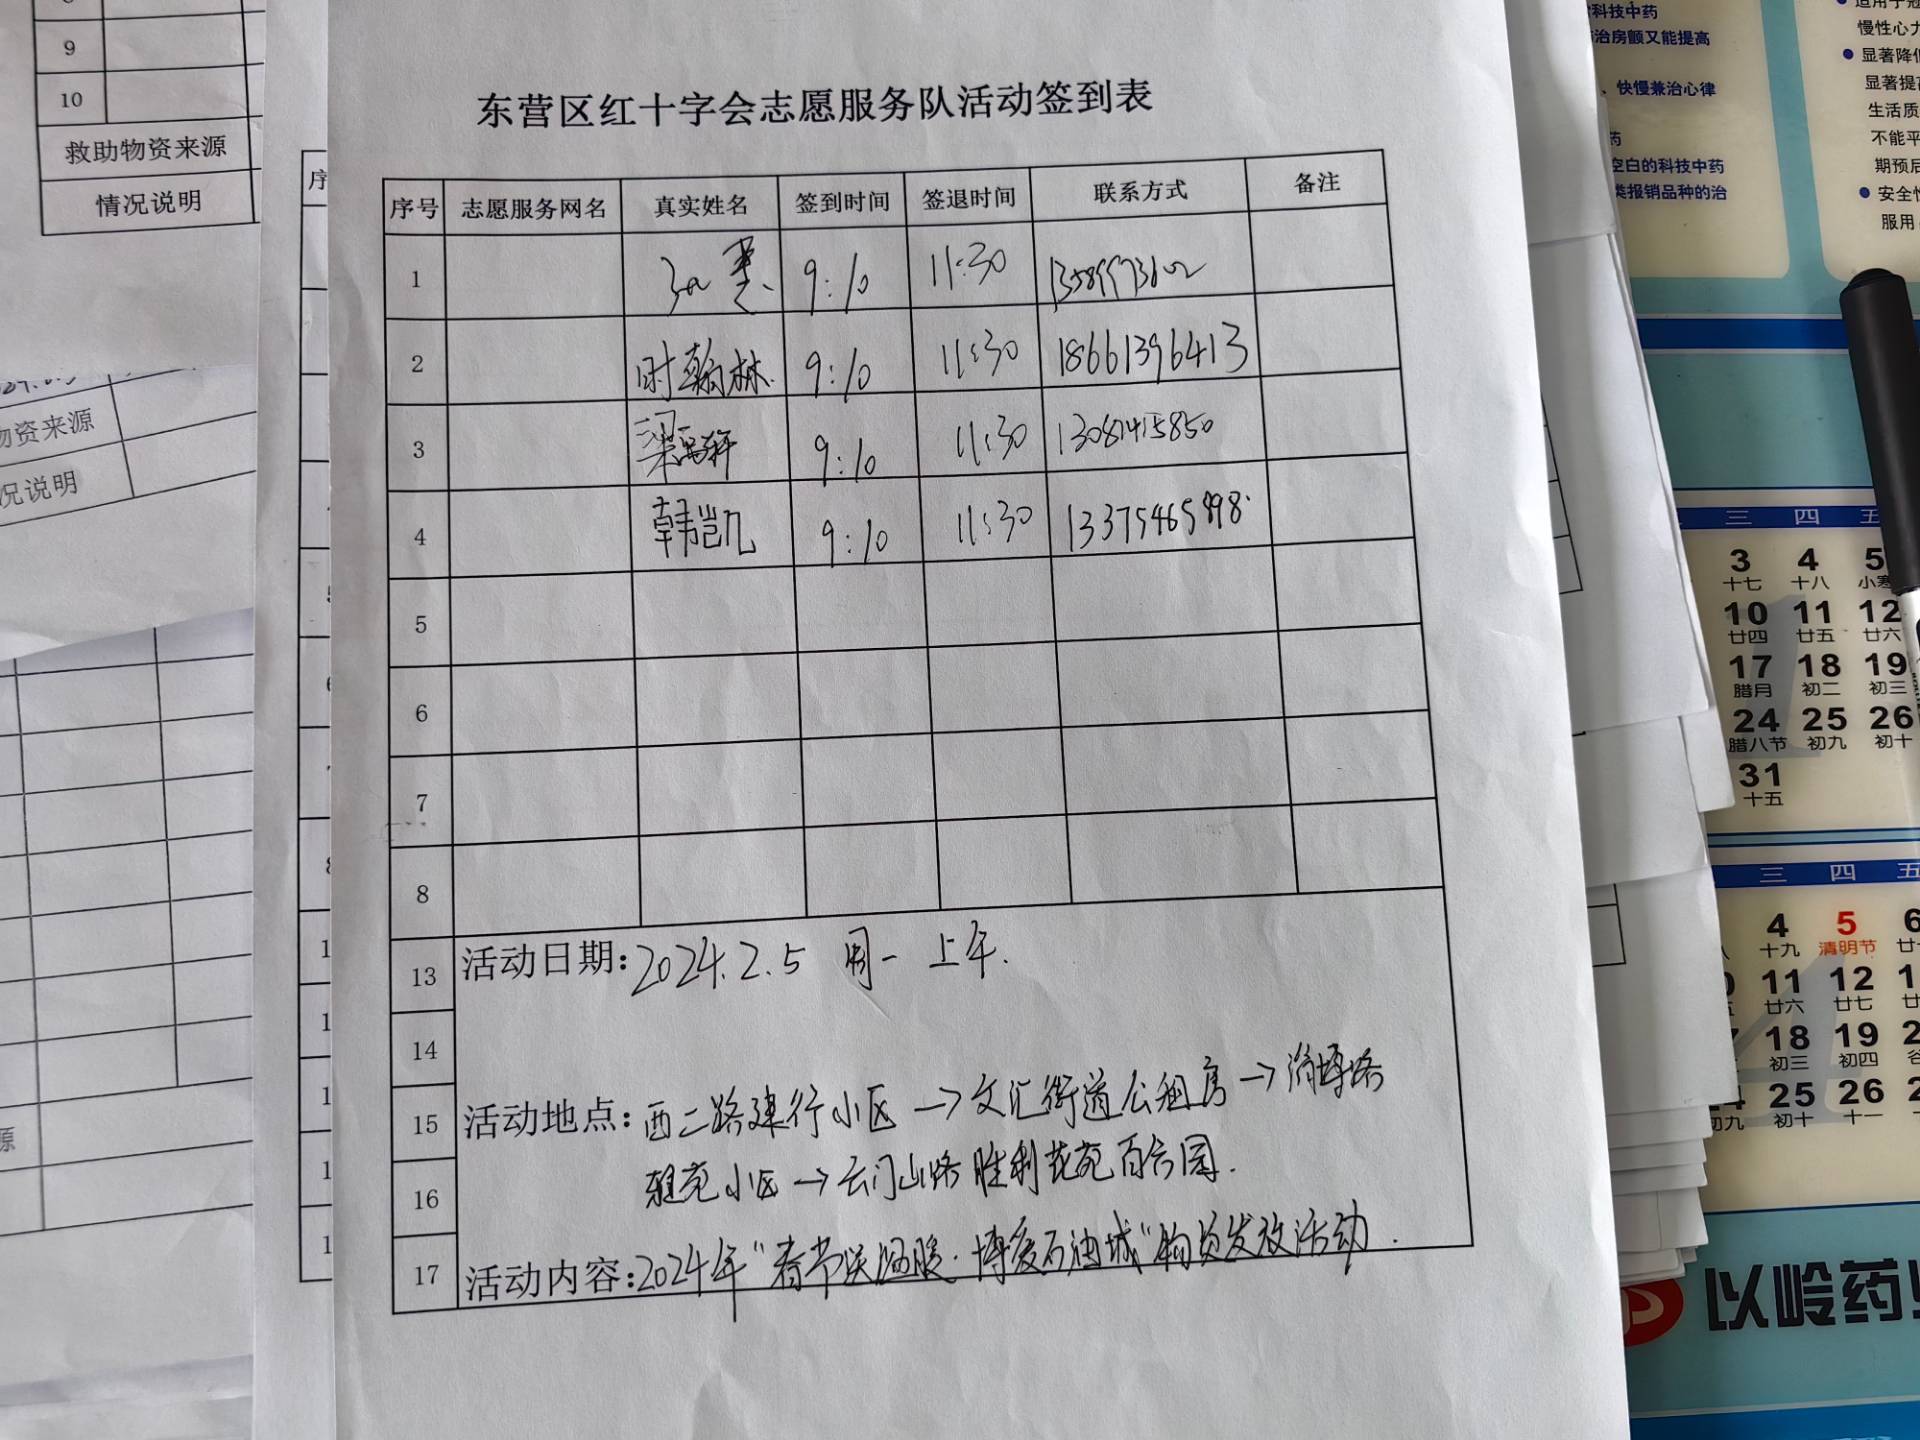 东营区红十字会志愿服务队活动签到表
序号 志愿服务网名 真实姓名 签到时间 签退时间 联系方式 备注
1 9:10 11:30
2 时翰林 9:10 11:30 18661396413
3 9:10 11:30 13081415850
4 韩凯 9:10 11:30 13375465898
5
6
7
8
13 活动日期:2024.2.5 周一 上午.
14
15 活动地点:西二路建行小区→文汇街道公租房→淄博路
16 雅苑小区→云门山路胜利花苑百合园.
17 活动内容:2024年“春节送温暖·博爱石油城”物资发放活动.
9
10
救助物资来源
情况说明
物资来源
况说明
源
科技中药
治房颤又能提高
、快慢兼治心律
药
空白的科技中药
类报销品种的治
慢性心力
显著降低
显著提高
生活质
不能平
期预后
安全性
服用
三 四 五
3 4 5
十七 十八 小寒
10 11 12
廿四 廿五 廿六
17 18 19
腊月 初二 初三
24 25 26
腊八节 初九 初十
31
十五
三 四 五
4 5 6
十九 清明节
11 12
廿六 廿七
18 19
初三 初四
25 26
初九 初十 十一
以岭药业